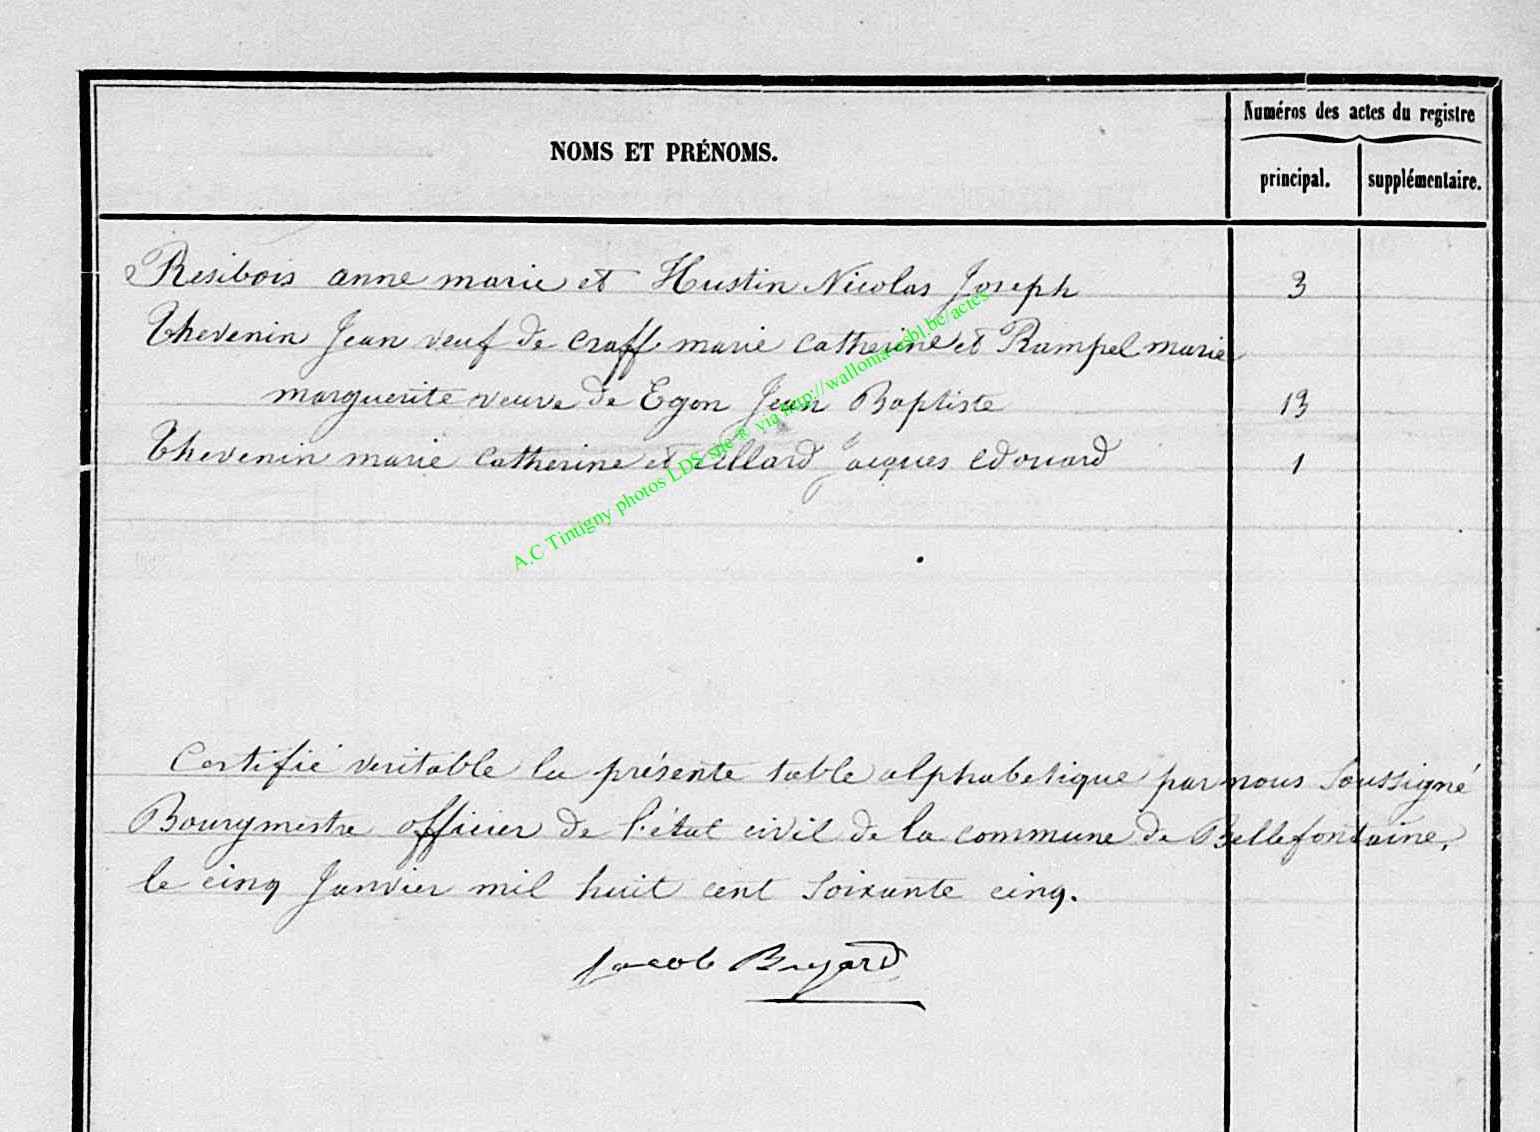 Numéros des actes du registre
NOMS ET PRÉNOMS.
principal. supplémentaire.
Resibois anne marie et Hustin Nicolas Joseph 3
Thevenin Jean veuf de Craff marie Catherine et Rampel marie
marguerite veuve de Egon Jean Baptiste 13
Thevenin marie Catherine et allard Jacques edouard 1
A.C Tintigny photos LDS site® via http://wallonia-asbl.be/actes
Certifié veritable la présente table alphabetique par nous soussigné
Bourgmestre officier de l'état civil de la commune de Bellefontaine,
le cinq Janvier mil huit cent soixante cinq.
Jacob